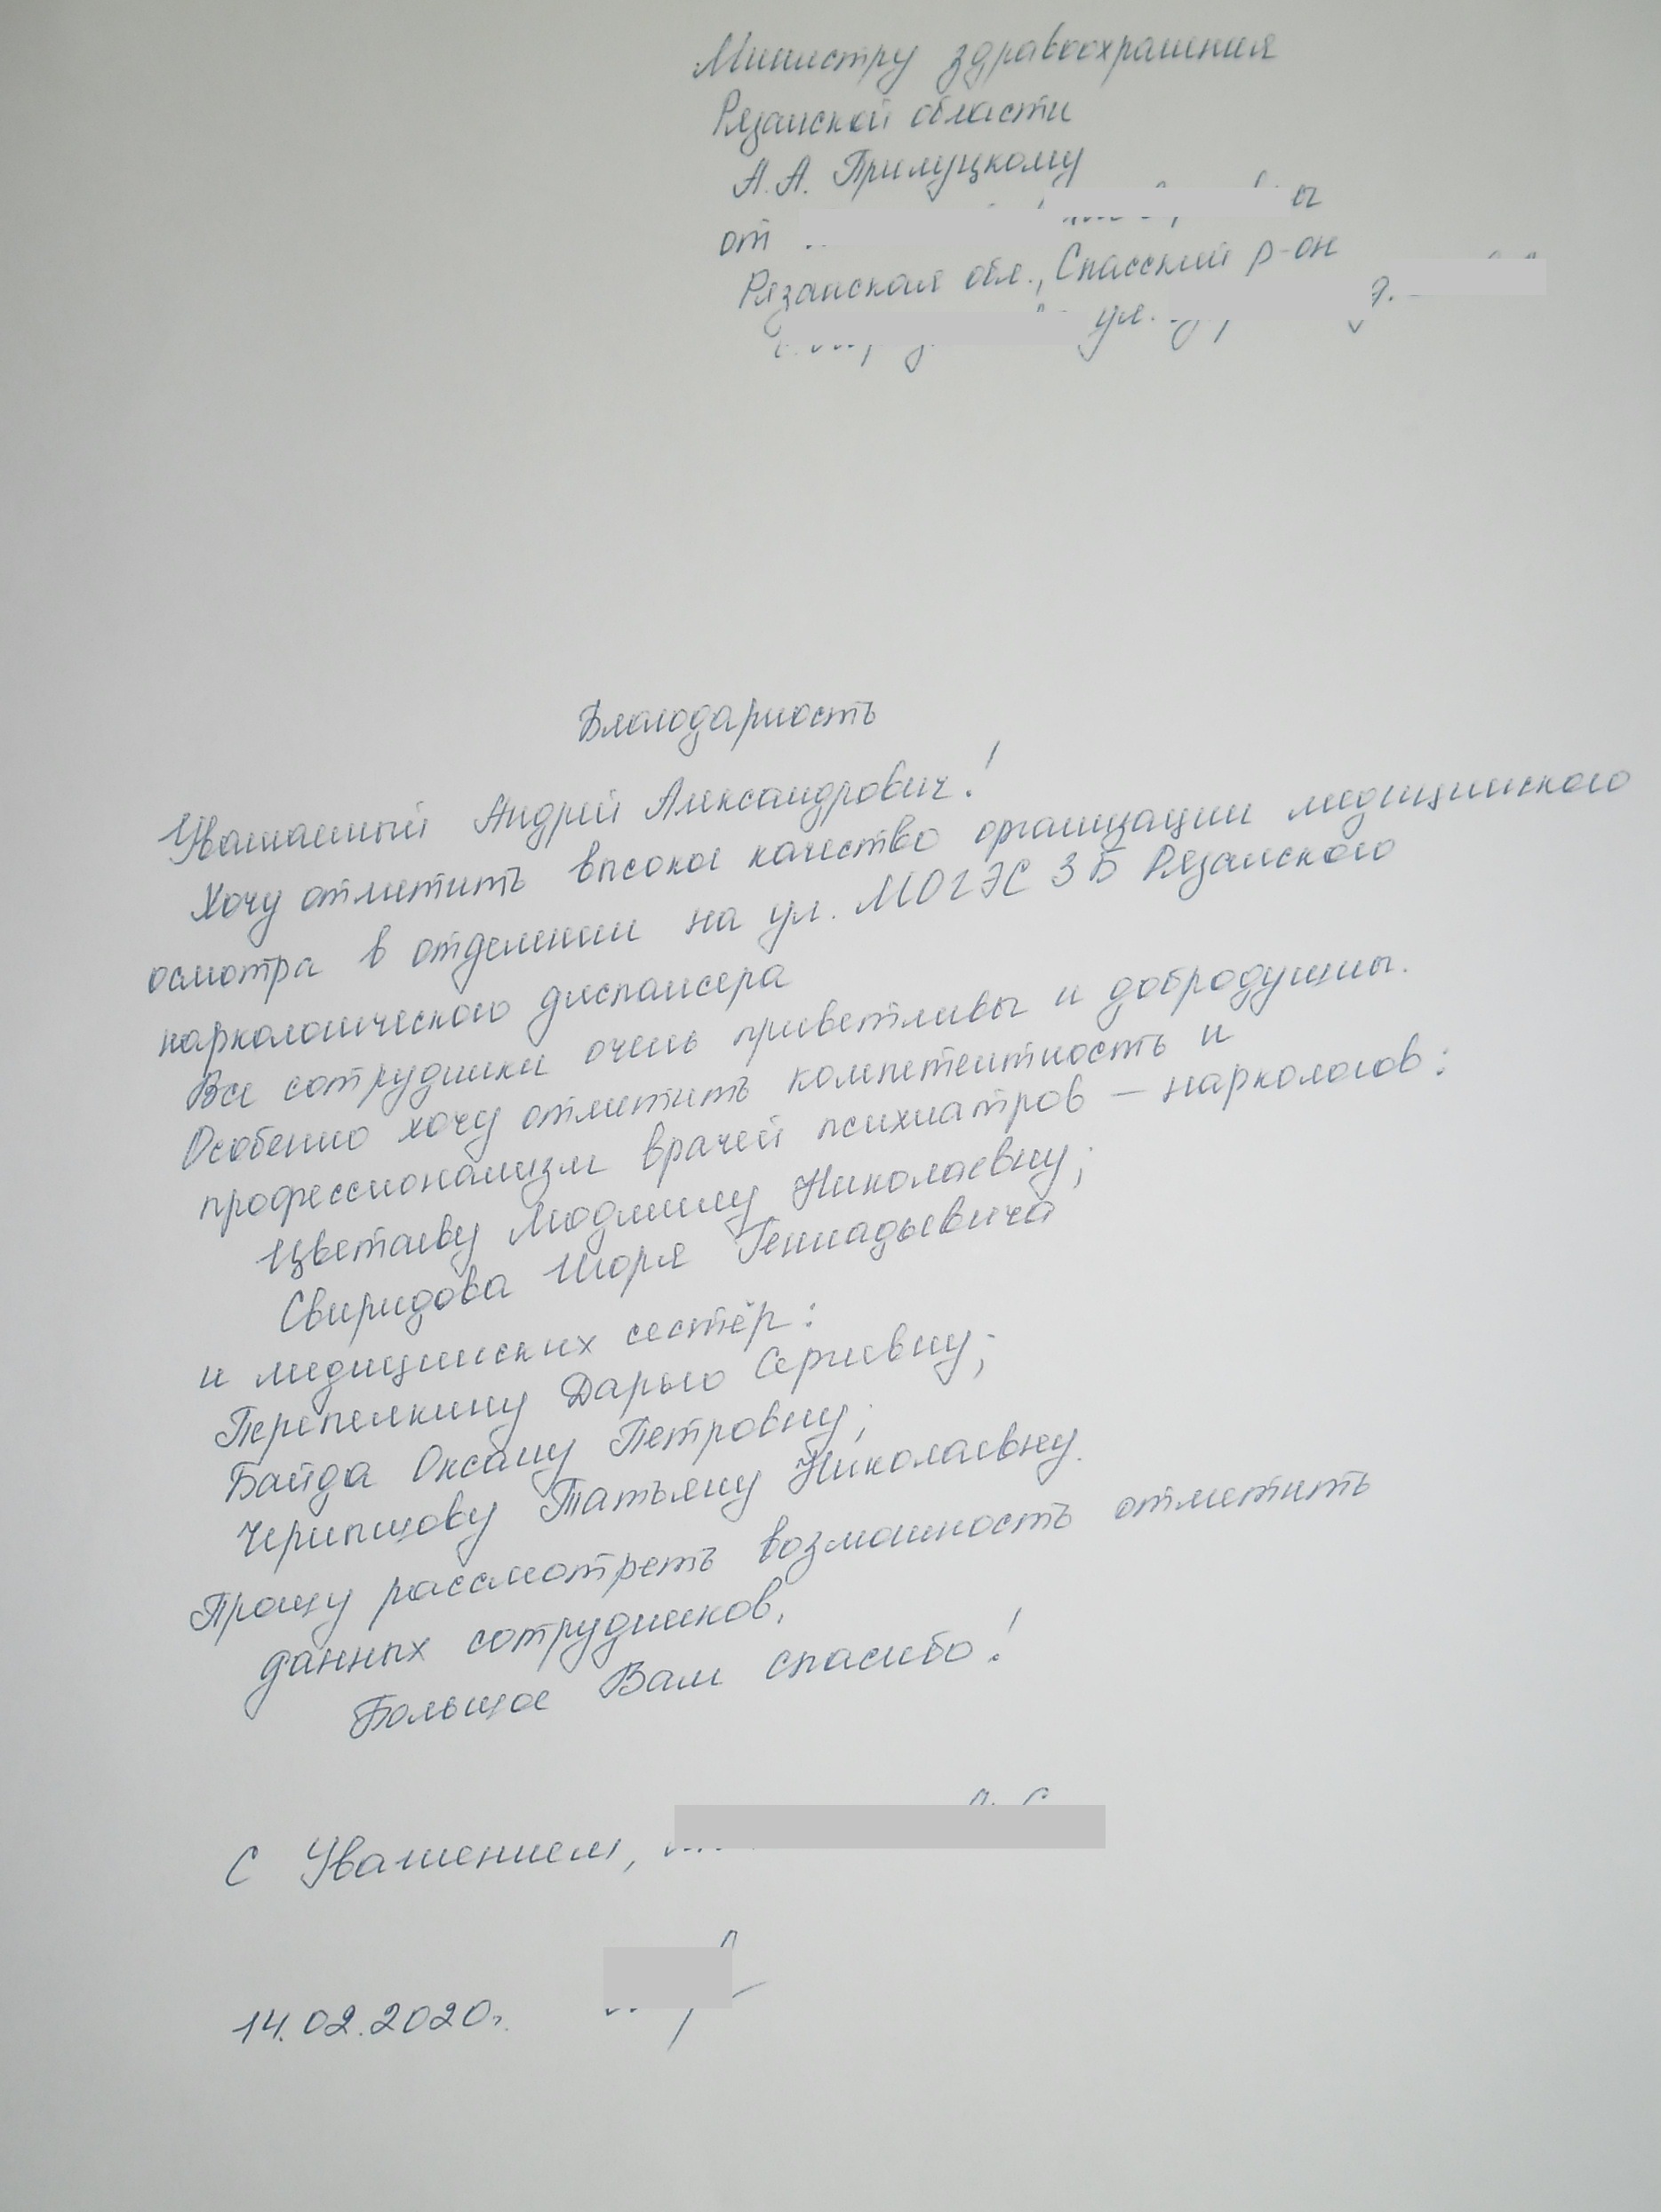 Министру здравоохранения
Рязанской области
А.А. Прилуцкому
от
Рязанская обл., Спасский р-он
ул. д.
Благодарность
Уважаемый Андрей Александрович!
Хочу отметить высокое качество организации медицинского
осмотра в отделении на ул. МОГЭС 3Б Рязанского
наркологического диспансера
Все сотрудники очень приветливы и добродушны.
Особенно хочу отметить компетентность и
профессионализм врачей психиатров – наркологов:
Цветаеву Людмилу Николаевну;
Свиридова Игоря Геннадьевича
и медицинских сестёр:
Перепелкину Дарью Сергеевну;
Байда Оксану Петровну;
Черипцову Татьяну Николаевну.
Прошу рассмотреть возможность отметить
данных сотрудников.
Большое Вам спасибо!
С Уважением,
14.02.2020г.